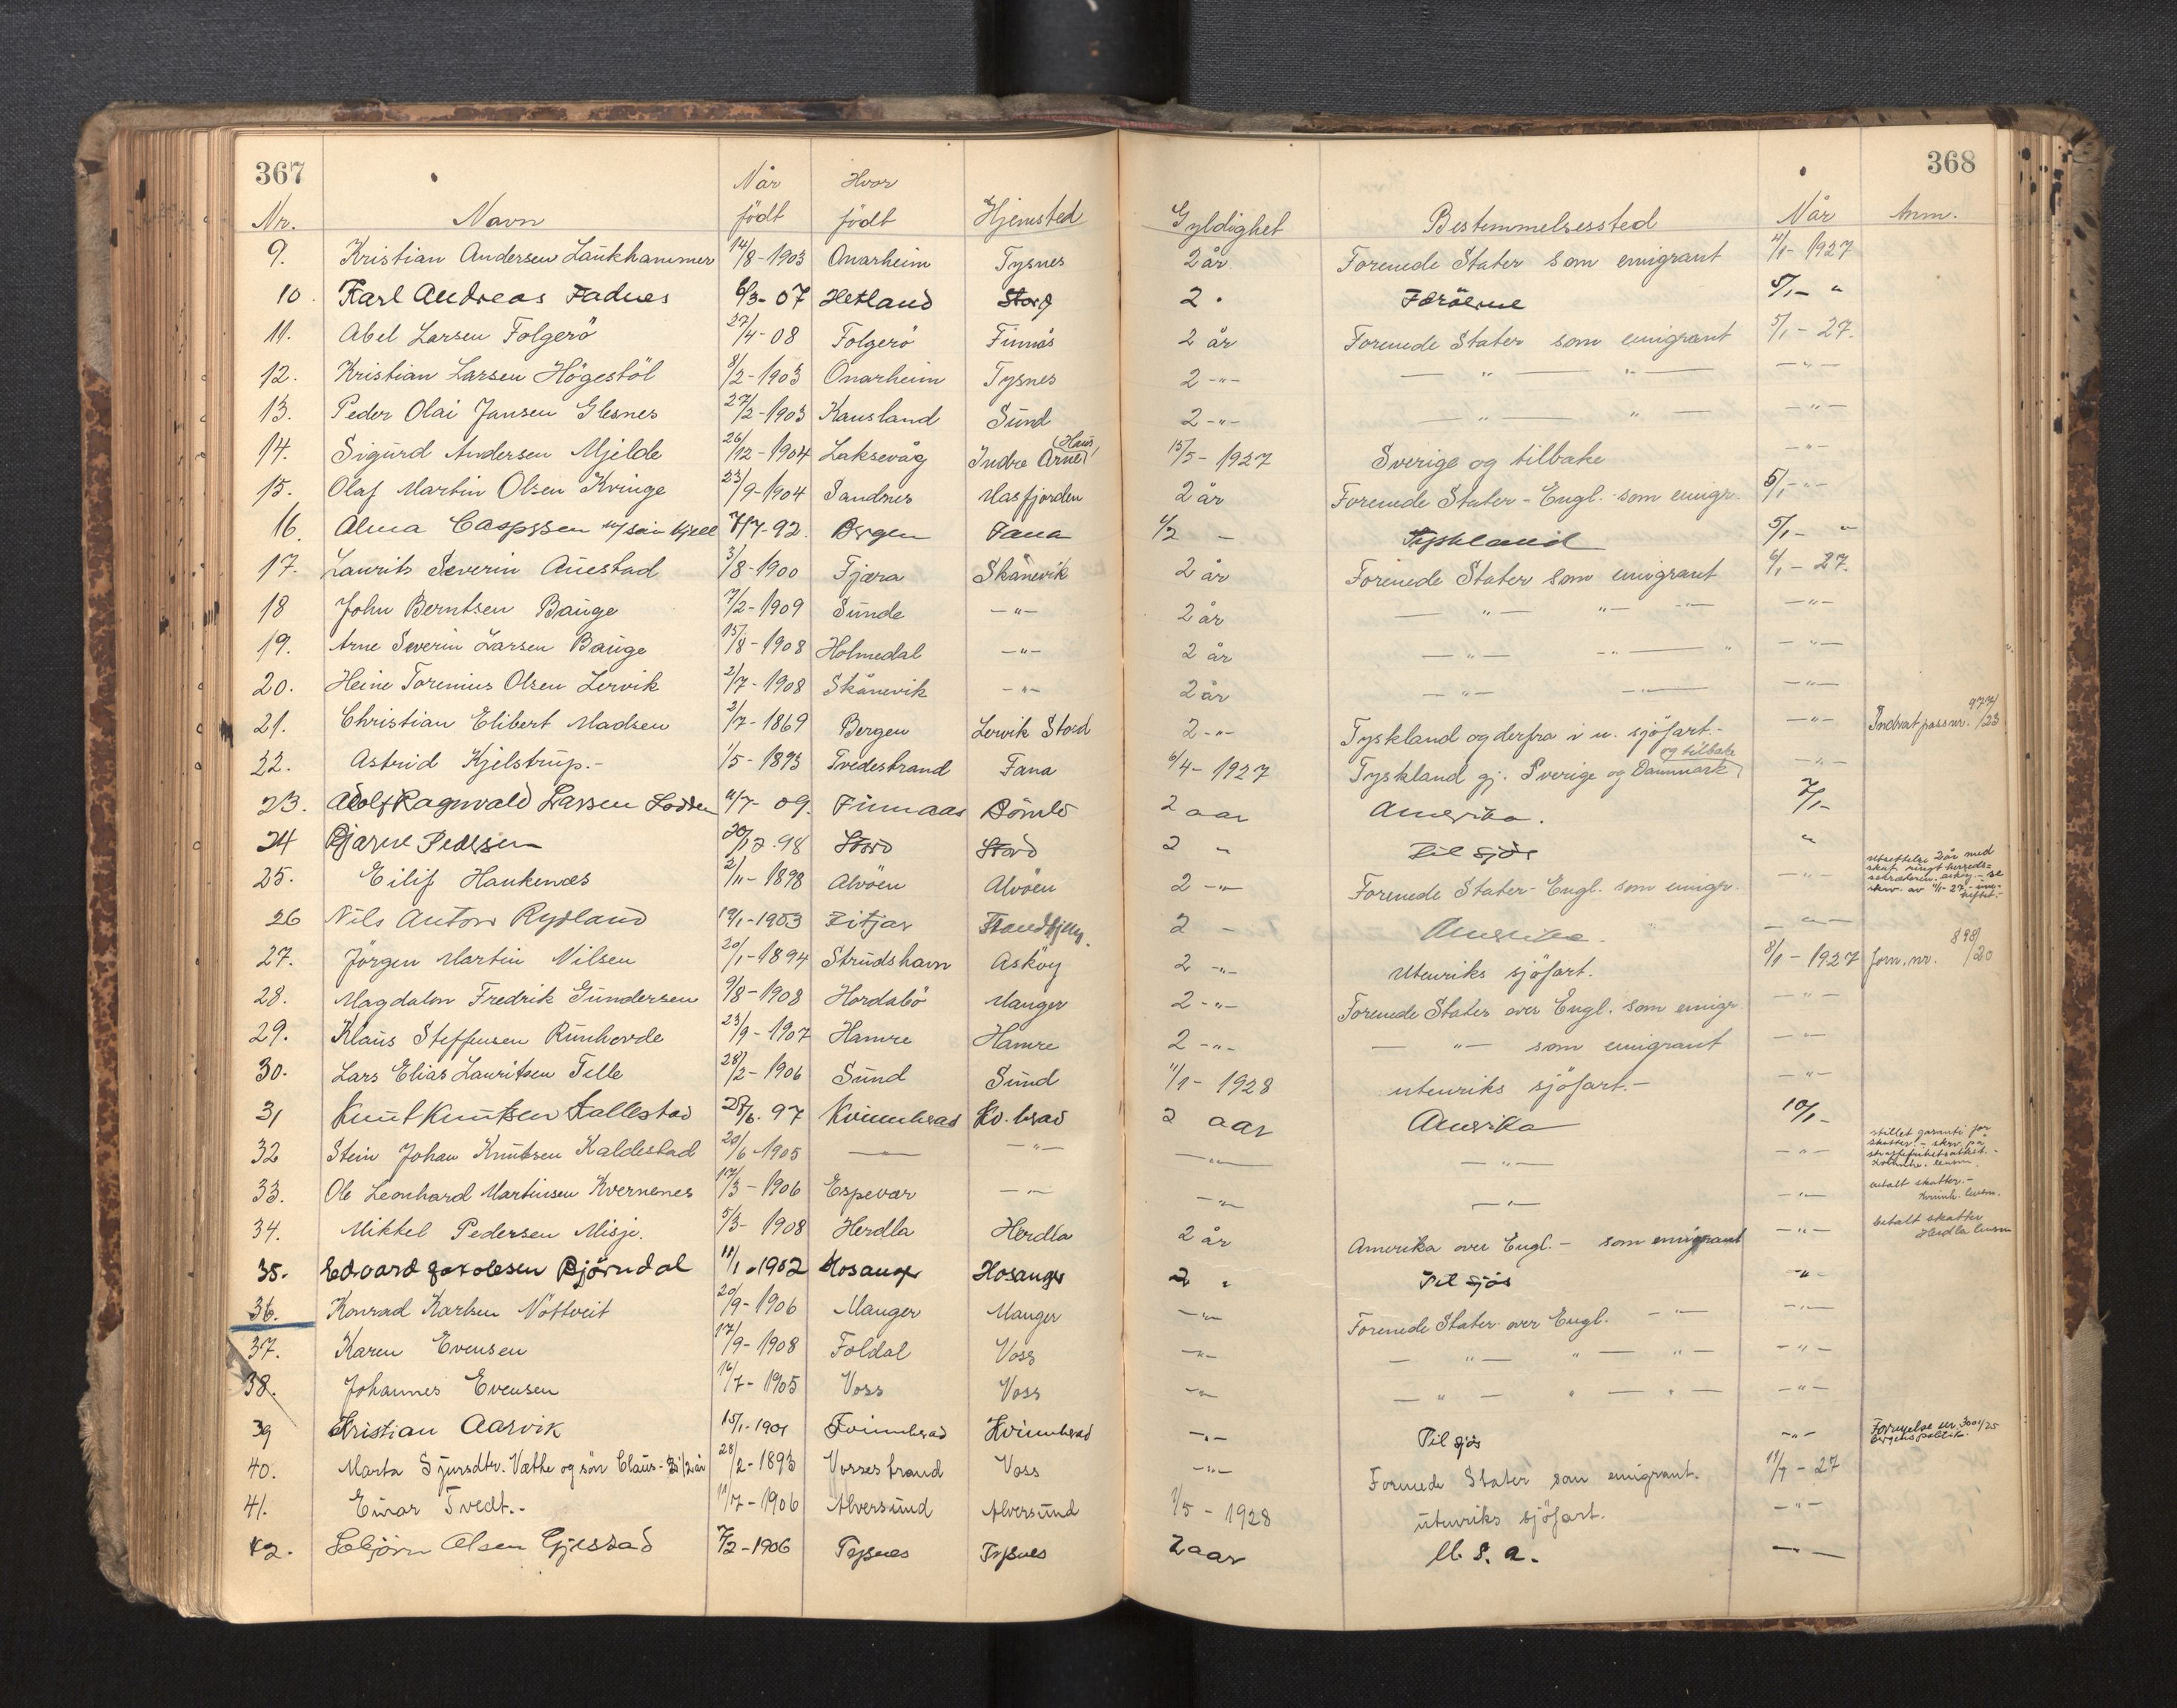 367
368
Nr. Navn Når födt Hvor födt Hjemsted Gyldighet Bestemmelsessted Når Anm.
9. Kristian Andersen Laukhammer 14/8-1903 Onarheim Tysnes 2 år Forenede Stater som emigrant 4/1-1927
10. Karl Andreas Fadnes 6/3-07 Hetland Stord 2 " Færöerne 5/1- "
11. Abel Larsen Folgerö 27/4-08 Folgerö Finnås 2 år Forenede Stater som emigrant 5/1-27.
12. Kristian Larsen Högestöl 8/2-1903 Onarheim Tysnes 2-"- — " — " — -"-
13. Peder Olai Jansen Glesnes 27/2-1903 Kausland Sund 2-"- — " — " — -"-
14. Sigurd Andersen Mjelde 26/12-1904 Laksevåg Indre Arne (Haus) 15/5-1927 Sverige og tilbake -"-
15. Olaf Martin Olsen Kvinge 23/9-1904 Sandnes Masfjorden 2 år Forenede Stater - Engl. som emigr. 5/1-"-
16. Alma Caspssen m/sön Kjell 7/7-92. Bergen Fana 1/2 - Tyskland 5/1- "
17. Laurits Severin Auestad 3/8-1900 Fjæra Skånevik 2 år Forenede Stater som emigrant 6/1-27.
18 John Berntsen Bauge 7/2-1909 Sunde -"- 2 år — " — " — -"-
19. Arne Severin Larsen Bauge 15/8-1908 Holmedal -"- 2 år — " — " — " -"-
20. Heine Torenius Olsen Lervik 2/7-1908 Skånevik -"- 2 år — " — " — -"-
21. Christian Elibert Madsen 2/7-1869 Bergen Lervik Stord 2-"- Tyskland og derfra i u. sjöfart.- -"- Indrat pass nr. 977/23
22. Astrid Kjelstrup.- 1/5-1893 Tvedestrand Fana 6/4-1927 Tyskland gj. Sverige og Danmark og tilbake -"-
23. Adolf Ragnvald Larsen Lodden 11/7-09. Finnaas Bömlo 2 aar Amerika. 7/1-
24 Bjarne Pedersen 20/12.98 Stord Stord 2 " Til sjös "
25. Eilif Haukenæs 2/11-1898 Alvöen Alvöen 2-"- Forenede Stater - Engl. som emigr. -"- utsettelse 2 år med
26 Nils Anton Rydland 19/1-1903 Fitjar 2 - Amerika. -"-
27. Jörgen Martin Nilsen 20/1-1894 Strudshavn Asköy 2-"- Utenriks sjöfart. 8/1-1927 forn. nr. 898/20
28. Magdalon Fredrik Gundersen 9/8-1908 Hordabö Manger 2-"- Forenede Stater over Engl. som emigr. -"-
29. Klaus Steffensen Runhovde 23/9-1907 Hamre Hamre 2-"- — " — som emigrant -"-
30. Lars Elias Lauritsen Telle 28/2-1906 Sund Sund 11/1-1928 utenriks sjöfart.- -"-
31 Knut Knutsen Kallestad 28/6.97 Kvinnherad Kv. herad 2 aar Amerika 10/1-
32 Stein Johan Knutsen Kaldestad 20/6-1905 — -"- -"- -"- -"- stillet garanti for skatter - skrv. på skattefrihetsattest.- Kvinnh. lensm.
33. Ole Leonhard Martinsen Kvernenes 17/3-1906 Espevær -"- -"- -"- -"- betalt skatter.- Kvinnh. lensm.
34. Mikkel Pedersen Misje. 5/3-1908 Herdla Herdla 2 år Amerika over Engl.- som emigrant -"- betalt skatter Herdla lensm
35. Edvard Jakobsen Björndal 11/1-1902 Hosanger Hosanger 2 " Til sjös -"-
36. Konrad Karlsen Nöttveit 20/9-1906 Manger Manger -"- Forenede Stater over Engl. -"- -"-
37. Karen Evensen 17/9-1908 Foldal Voss -"- — " — " — " — -"-
38. Johannes Evensen 16/7-1905 Voss Voss -"- — " — " — " — -"-
39 Kristian Aarvik 15/1-1901 Kvinnherad Kvinnherad -"- Til sjös -"- Fornyelse nr. 3001/25 Bergens politik.
40. Marta Sjursdtr. Væthe og sön Claus - 3 1/2 år 28/2-1893 Vossestrand Voss -"- Forenede Stater som emigrant. 11/1-27
41. Einar Tvedt.- 11/7-1906 Alversund Alversund 1/5-1928 utenriks sjöfart. -"-
42. Lebjörn Olsen Gjerstad 7/2-1906 Tysnes Tysnes 2 aar U. S. A. —